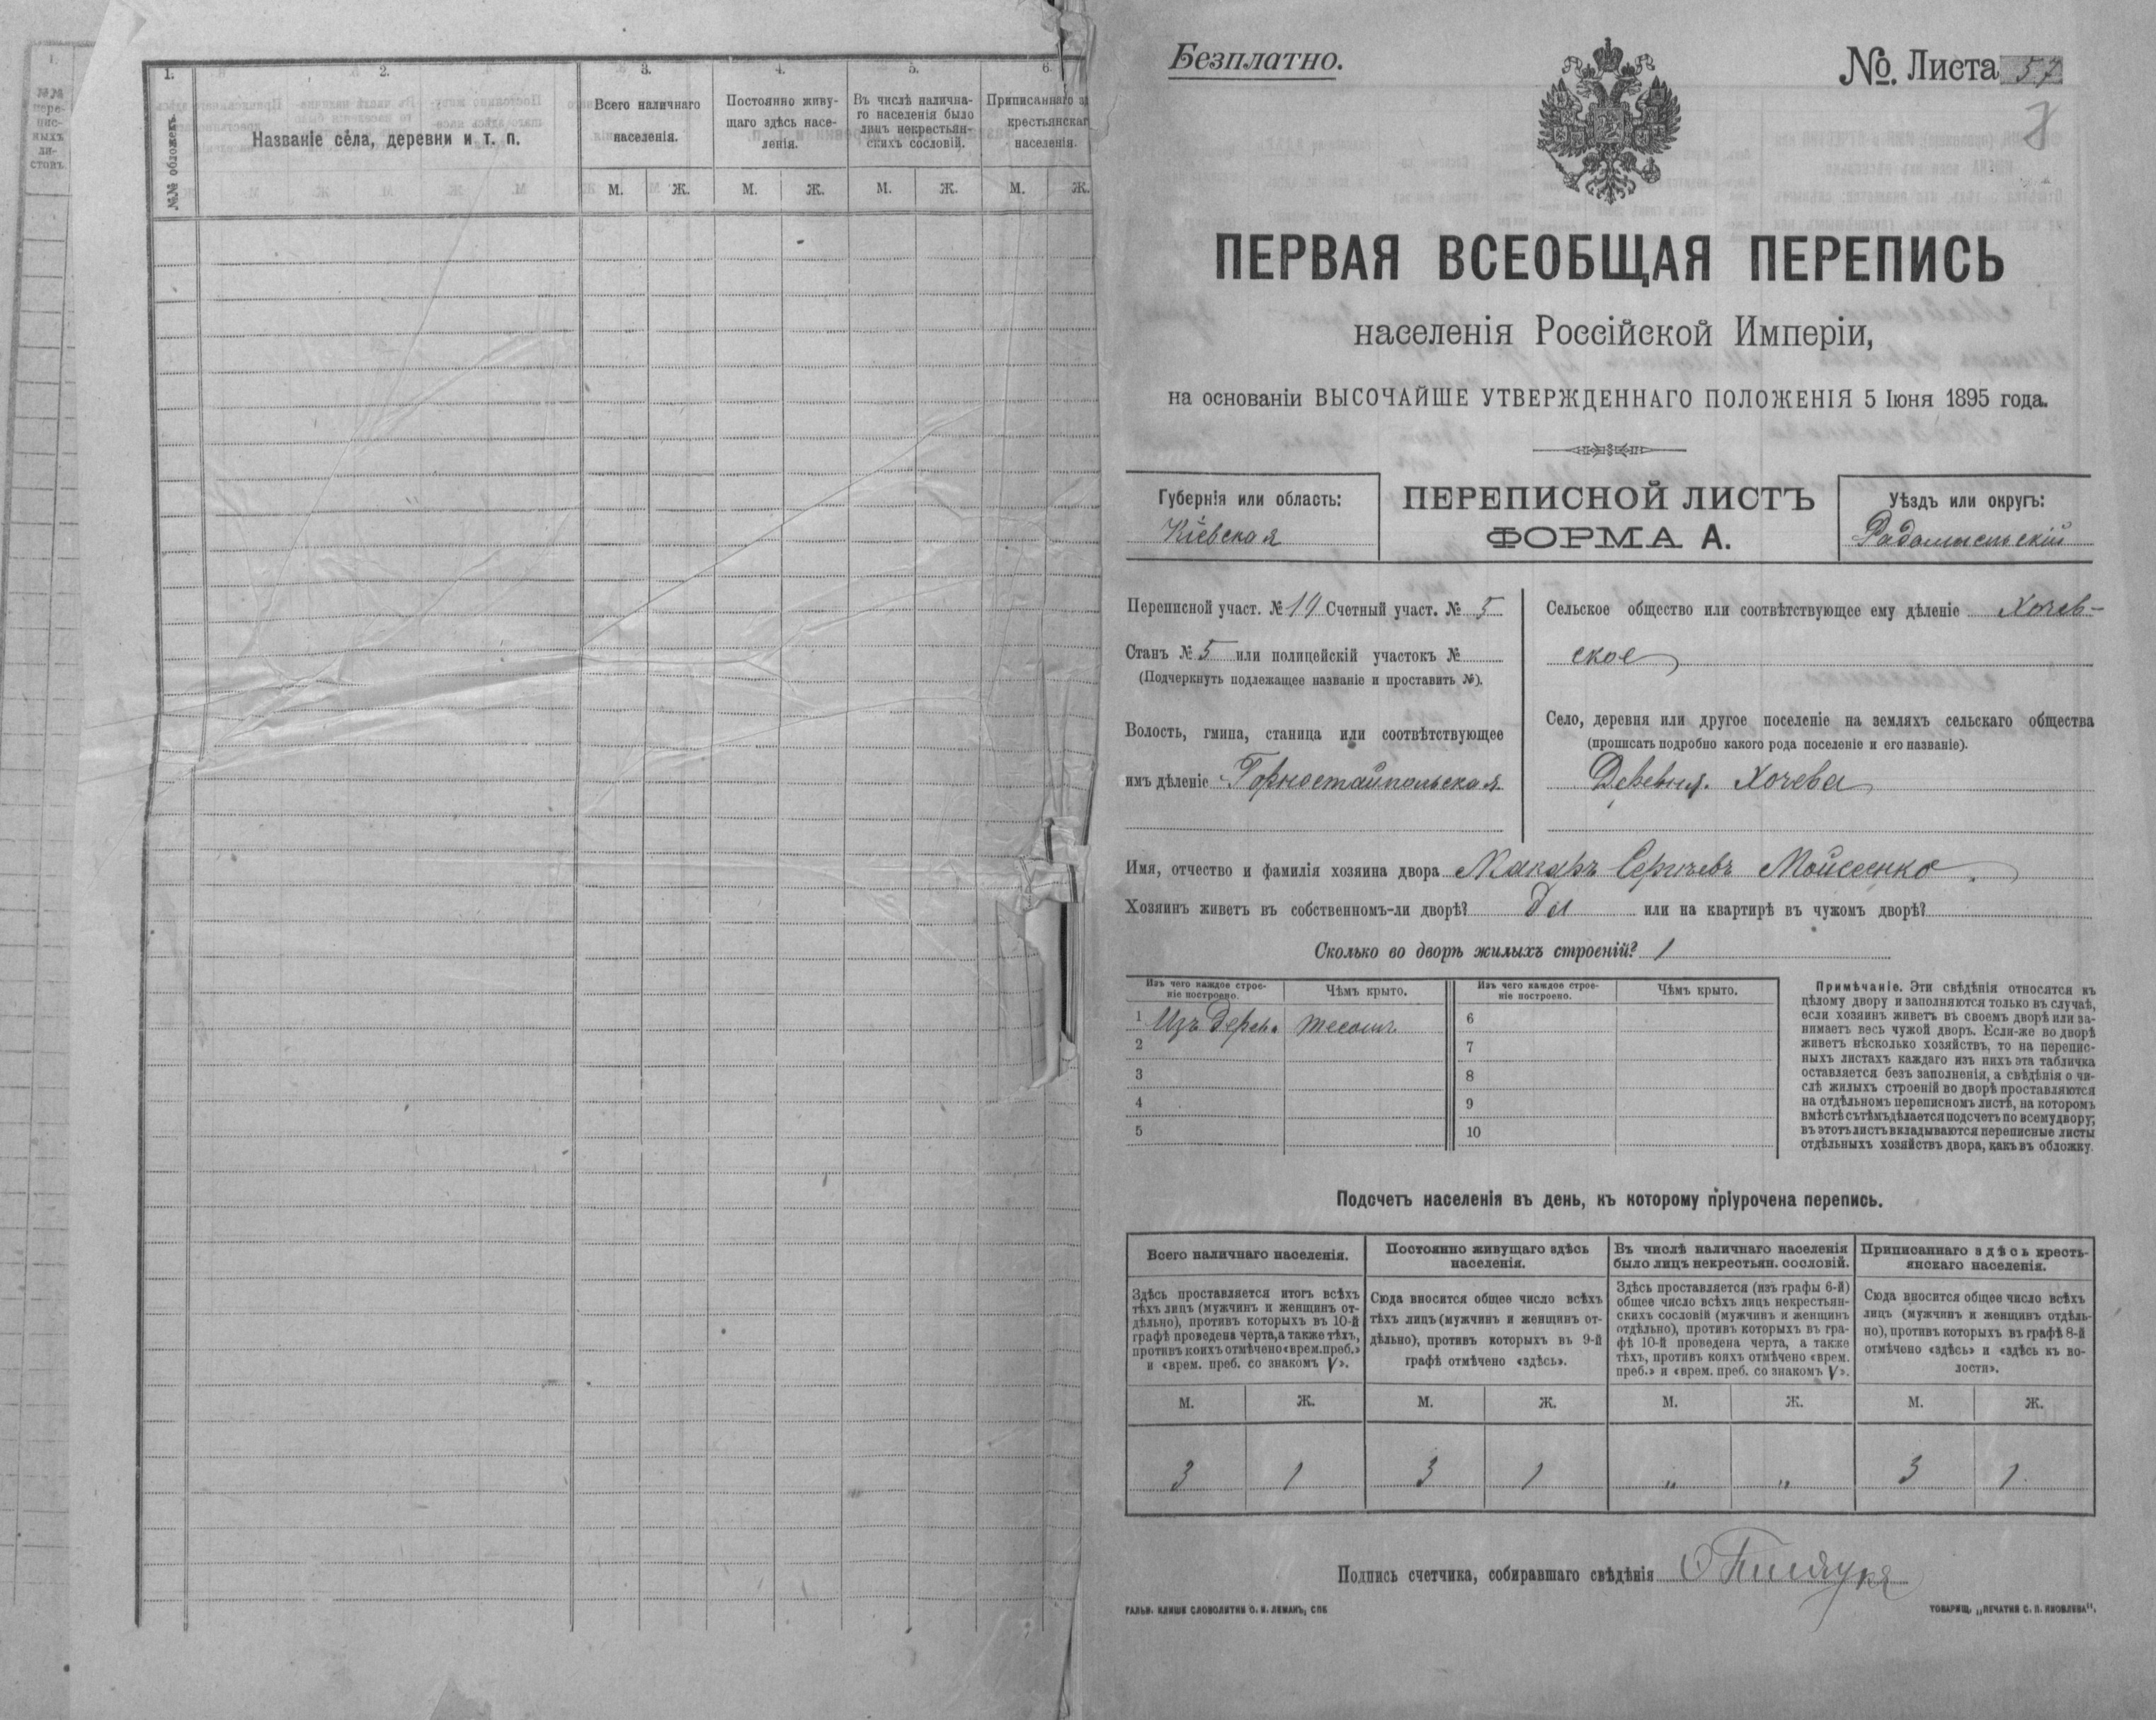 1.
№№ пере-
пис-
ныхъ
ли-
стовъ
1.
2.
3.
4.
5.
6.
№№ обложекъ.
Названіе села, деревни и т. п.
Всего наличнаго
населенія.
Постоянно живу-
щаго здѣсь насе-
ленія.
Въ числѣ налична-
го населенія было
лицъ некрестьян-
скихъ сословій.
Приписаннаго
крестьянскаг
населенія.
М. Ж. М. Ж. М. Ж. М. Ж.
Безплатно.
№ Листа 57
ПЕРВАЯ ВСЕОБЩАЯ ПЕРЕПИСЬ
населенія Россійской Имперіи,
на основаніи ВЫСОЧАЙШЕ УТВЕРЖДЕННАГО ПОЛОЖЕНІЯ 5 Іюня 1895 года.
Губернія или область:
Кіевская
ПЕРЕПИСНОЙ ЛИСТЪ
ФОРМА А.
Уѣздъ или округъ:
Радомысльскій
Переписной участ. № 19 Счетный участ. № 5
Станъ № 5 или полицейскій участокъ №
(Подчеркнуть подлежащее названіе и проставить №).
Волость, гмина, станица или соотвѣтствующее
имъ дѣленіе Горностайпольская
Сельское общество или соотвѣтствующее ему дѣленіе Хочев-
ское
Село, деревня или другое поселеніе на земляхъ сельскаго общества
(прописать подробно какого рода поселеніе и его названіе).
Деревня. Хочева
Имя, отчество и фамилія хозяина двора Макаръ Сергѣевъ Мойсеенко.
Хозяинъ живетъ въ собственномъ-ли дворѣ? да или на квартирѣ въ чужомъ дворѣ?
Сколько во дворѣ жилыхъ строеній? 1
Изъ чего каждое строе-
ніе построено.
Чѣмъ крыто.
Изъ чего каждое строе-
ніе построено.
Чѣмъ крыто.
1 Изъ дерев. тесомъ
2
3
4
5
6
7
8
9
10
Примѣчаніе. Эти свѣдѣнія относятся къ
цѣлому двору и заполняются только въ случаѣ,
если хозяинъ живетъ въ своемъ дворѣ или за-
нимаетъ весь чужой дворъ. Если-же во дворѣ
живетъ нѣсколько хозяйствъ, то на перепис-
ныхъ листахъ каждаго изъ нихъ эта табличка
оставляется безъ заполненія, а свѣдѣнія о чи-
слѣ жилыхъ строеній во дворѣ проставляются
на отдѣльномъ переписномъ листѣ, на которомъ
вмѣстѣ съ тѣмъ дѣлается подсчетъ по всему двору;
въ этотъ листъ вкладываются переписные листы
отдѣльныхъ хозяйствъ двора, какъ въ обложку.
Подсчетъ населенія въ день, къ которому пріурочена перепись.
Всего наличнаго населенія.
Здѣсь проставляется итогъ всѣхъ
тѣхъ лицъ (мужчинъ и женщинъ от-
дѣльно), противъ которыхъ въ 10-й
графѣ проведена черта, а также тѣхъ,
противъ коихъ отмѣчено «врем. преб.»
и «врем. преб. со знакомъ V».
Постоянно живущаго здѣсь
населенія.
Сюда вносится общее число всѣхъ
тѣхъ лицъ (мужчинъ и женщинъ от-
дѣльно), противъ которыхъ въ 9-й
графѣ отмѣчено «здѣсь».
Въ числѣ наличнаго населенія
было лицъ некрестьян. сословій.
Здѣсь проставляется (изъ графы 6-й)
общее число всѣхъ лицъ некрестьян-
скихъ сословій (мужчинъ и женщинъ
отдѣльно), противъ которыхъ въ гра-
фѣ 10-й проведена черта, а также
тѣхъ, противъ коихъ отмѣчено «врем.
преб.» и «врем. преб. со знакомъ V».
Приписаннаго здѣсь кресть-
янскаго населенія.
Сюда вносится общее число всѣхъ
лицъ (мужчинъ и женщинъ отдѣль-
но), противъ которыхъ въ графѣ 8-й
отмѣчено «здѣсь» и «здѣсь къ во-
лости».
М. Ж. М. Ж. М. Ж. М. Ж.
3 1 3 1 „ „ 3 1
Подпись счетчика, собиравшаго свѣдѣнія
ГАЛЬВ. КЛИШЕ СЛОВОЛИТНИ О. И. ЛЕМАНЪ, СПБ
ТОВАРИЩ. „ПЕЧАТНЯ С. П. ЯКОВЛЕВА".